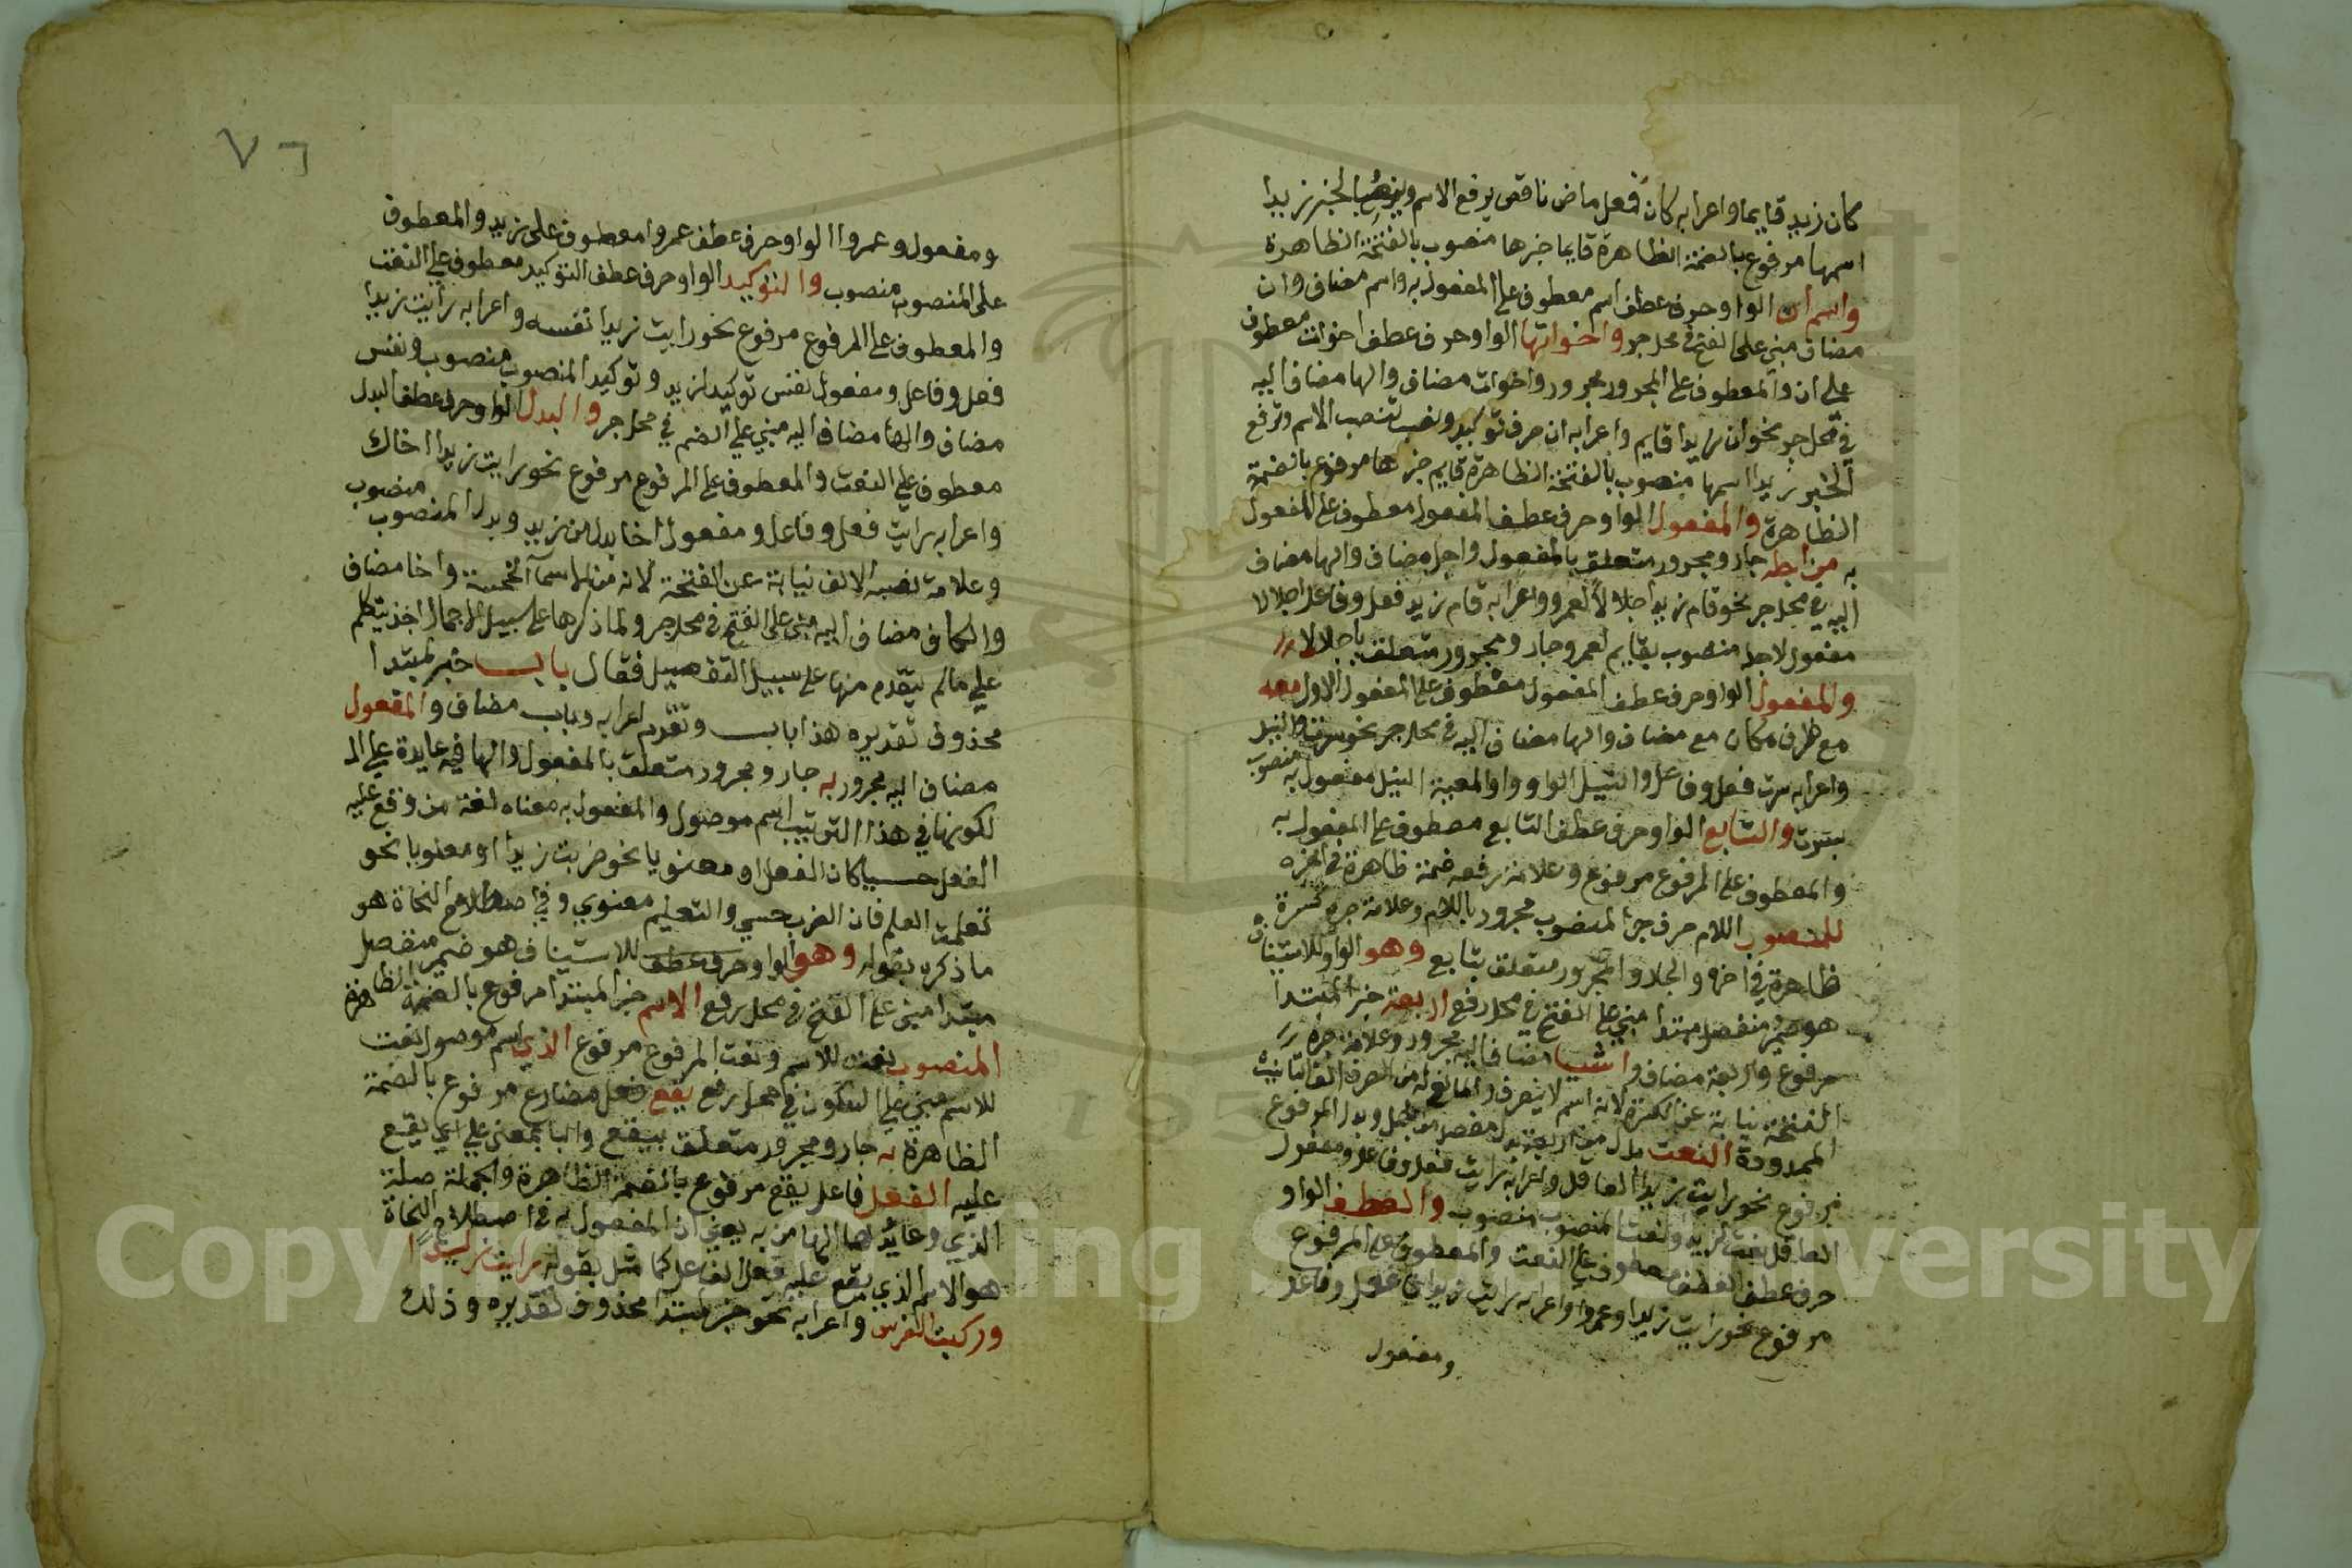 كان زيد قايما واعرابه كان فعل ماض ناقص يرفع الاسم وينصب الخبر زيدا
اسمها مرفوع بالضمة الظاهرة قايما خبرها منصوب بالفتحة الظاهرة
واسم ان الواو حرف عطف اسم معطوف على المفعول به واسم مضاف وان
مضاف مبني على الفتح في محل جر واخواتها الواو حرف عطف اخوات معطوف
على ان والمعطوف على المجرور مجرور واخوات مضاف والها مضاف اليه
في محل جر نحو ان زيدا قايم واعرابه ان حرف توكيد ونصب تنصب الاسم وترفع
الخبر زيدا اسمها منصوب بالفتحة الظاهرة قايم خبرها مرفوع بالضمة
الظاهرة والمفعول الواو حرف عطف المفعول معطوف على المفعول
به من اجله جار ومجرور متعلق بالمفعول واجل مضاف والها مضاف
اليه في محل جر نحو قام زيد اجلالا لعمرو واعرابه قام زيد فعل وفاعل اجلالا
مفعول لاجله منصوب بقايم لعمرو جار ومجرور متعلق باجلالا
والمفعول الواو حرف عطف المفعول معطوف على المفعول الاول معه
مع ظرف مكان مع مضاف والها مضاف اليه في محل جر نحو سرت والنيل
واعرابه سرت فعل وفاعل والنيل الواو واو المعية النيل مفعول به منصوب
بسرت والتابع الواو حرف عطف التابع معطوف على المفعول به
والمعطوف على المرفوع مرفوع وعلامة رفعه ضمة ظاهرة في اخره
للمنصوب اللام حرف جر المنصوب مجرور باللام وعلامة جره كسرة
ظاهرة في اخره والجار والمجرور متعلق بتابع وهو الواو للاستيناف
هو ضمير منفصل مبتدا مبني على الفتح في محل رفع اربعة خبر المبتدا
مرفوع واربعة مضاف واشيا مضاف اليه مجرور وعلامة جره
الفتحة نيابة عن الكسرة لانه اسم لا ينصرف والمانع له من الصرف الف التانيث
الممدودة النعت بدل من اربعة بدل مفصل من مجمل وبدل المرفوع
مرفوع نحو رايت زيدا العاقل واعرابه رايت فعل وفاعل ومفعول
العاقل نعت لزيد ونعت المنصوب منصوب والعطف الواو
حرف عطف العطف معطوف على النعت والمعطوف على المرفوع
مرفوع نحو رايت زيدا وعمروا واعرابه رايت فعل وفاعل
ومفعول
٧٦
ومفعول وعمروا الواو حرف عطف عمروا معطوف على زيد والمعطوف
على المنصوب منصوب والتوكيد الواو حرف عطف التوكيد معطوف على النعت
والمعطوف على المرفوع مرفوع نحو رايت زيدا نفسه واعرابه رايت زيدا
فعل وفاعل ومفعول نفس توكيد لزيد وتوكيد المنصوب منصوب ونفس
مضاف والها مضاف اليه مبني على الضم في محل جر والبدل الواو حرف عطف البدل
معطوف على النعت والمعطوف على المرفوع مرفوع نحو رايت زيدا اخاك
واعرابه رايت فعل وفاعل ومفعول اخا بدل من زيد وبدل المنصوب منصوب
وعلامة نصبه الالف نيابة عن الفتحة لانه من الاسما الخمسة واخا مضاف
والكاف مضاف اليه مبني على الفتح في محل جر ولما ذكرها على سبيل الاجمال اخذ يتكلم
على مالم يتقدم منها على سبيل التفصيل فقال باب خبر لمبتدا
محذوف تقديره هذا باب وتقدم اعرابه وباب مضاف والمفعول
مضاف اليه مجرور به جار ومجرور متعلق بالمفعول والها فيه عايدة على ال
لكونها في هذا التركيب اسم موصول والمفعول به معناه لغة من وقع عليه
الفعل حسيا كان الفعل او معنويا نحو ضربت زيدا او معنويا نحو
تعلمت العلم فان الضرب حسي والتعليم معنوي وفي اصطلاح النحاة هو
ما ذكره بقوله وهو الواو حرف عطف للاستيناف هو ضمير منفصل
مبتدا مبني على الفتح في محل رفع الاسم خبر المبتدا مرفوع بالضمة الظاهرة
المنصوب نعت للاسم ونعت المرفوع مرفوع الذي اسم موصول نعت
للاسم مبني على السكون في محل رفع يقع فعل مضارع مرفوع بالضمة
الظاهرة به جار ومجرور متعلق بيقع والبا بمعنى على اي يقع
عليه الفعل فاعل يقع مرفوع بالضمة الظاهرة والجملة صلة
الذي وعايدها الها من به يعني ان المفعول به في اصطلاح النحاة
هو الاسم الذي يقع عليه فعل الفاعل كما مثل بقوله رايت زيدا
وركبت الفرس واعرابه نحو خبر لمبتدا محذوف تقديره وذلك
Copyright © King Saud University